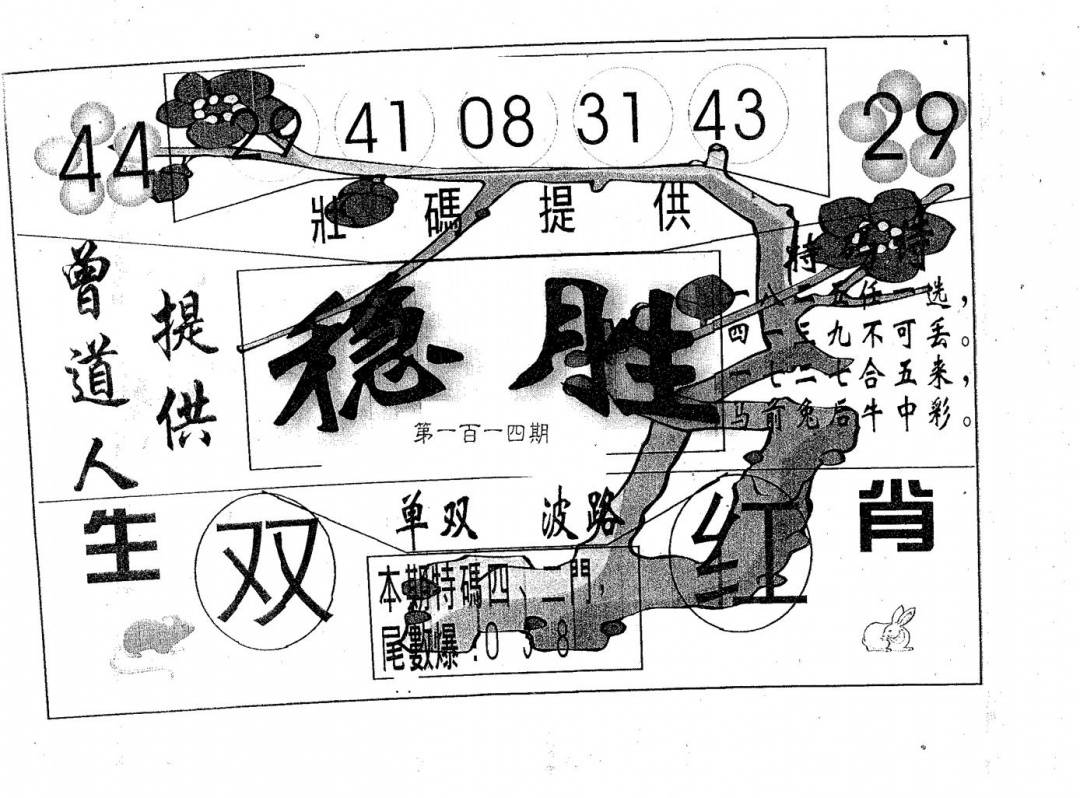 44 29 41 08 31 43 29
壯碼提供
曾道人
提供
稳胜
第一百一四期
特码诗
一八二五任一选，
四一三九不可丢。
一七二七合五来，
马前兔后牛中彩。
生肖
单双 波路
双 红
本期特碼四、二門，
尾數爆:0 3 8